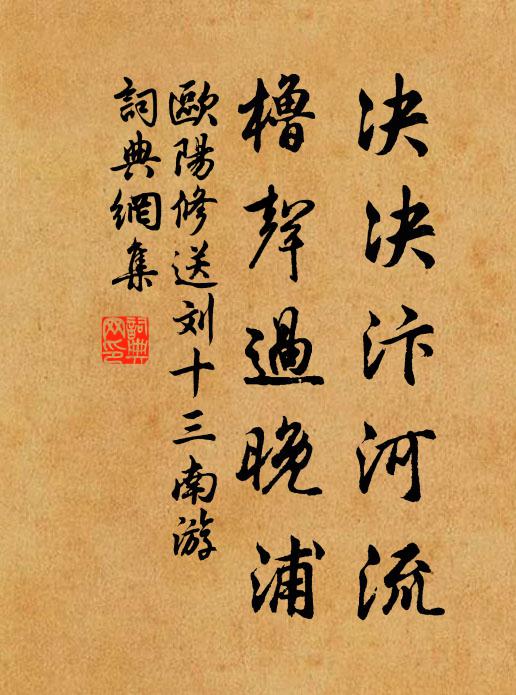 决决汴河流
櫓聲過晚浦
歐陽修送刘十三南游
詞典網集
詞典网印